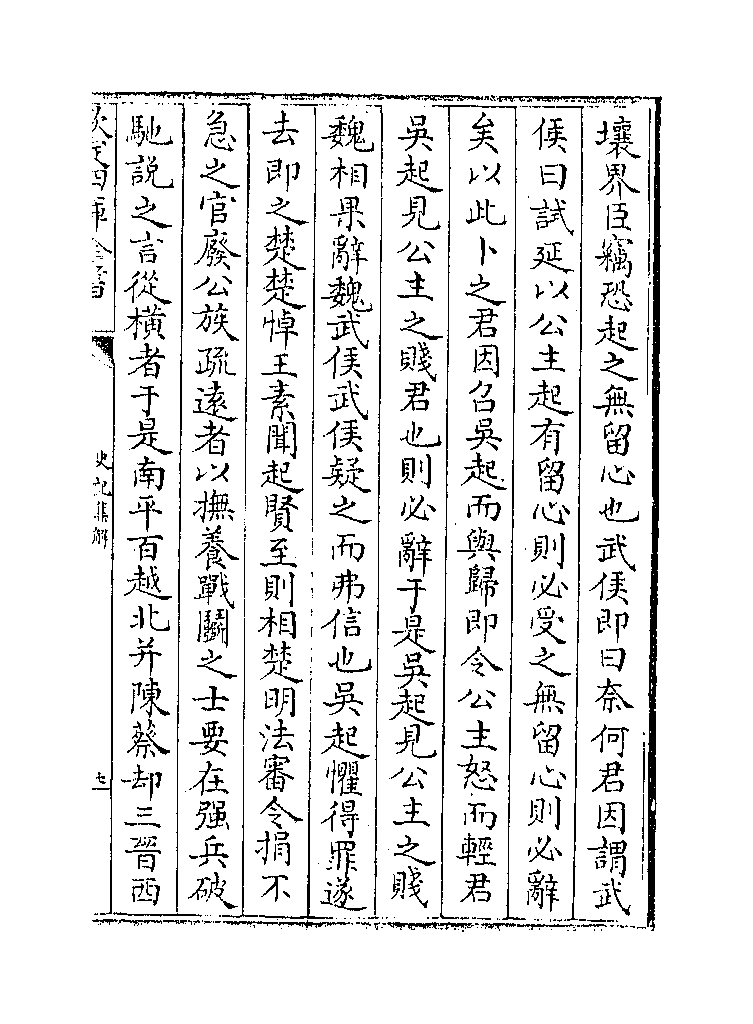 壤界臣竊恐起之無留心也武侯即曰奈何君因謂武
侯曰試延以公主起有留心則必受之無留心則必辭
矣以此卜之君因召吳起而與歸即令公主怒而輕君
吳起見公主之賤君也則必辭于是吳起見公主之賤
魏相果辭魏武侯武侯疑之而弗信也吳起懼得罪遂
去即之楚楚悼王素聞起賢至則相楚明法審令捐不
急之官廢公族疏遠者以撫養戰鬭之士要在强兵破
馳說之言從橫者于是南平百越北并陳蔡却三晉西
欽定四庫全書
史記集解